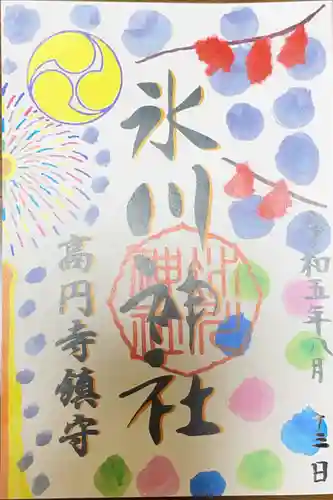 令和五年八月十三日
氷川神社
高円寺鎮守
氷川神社